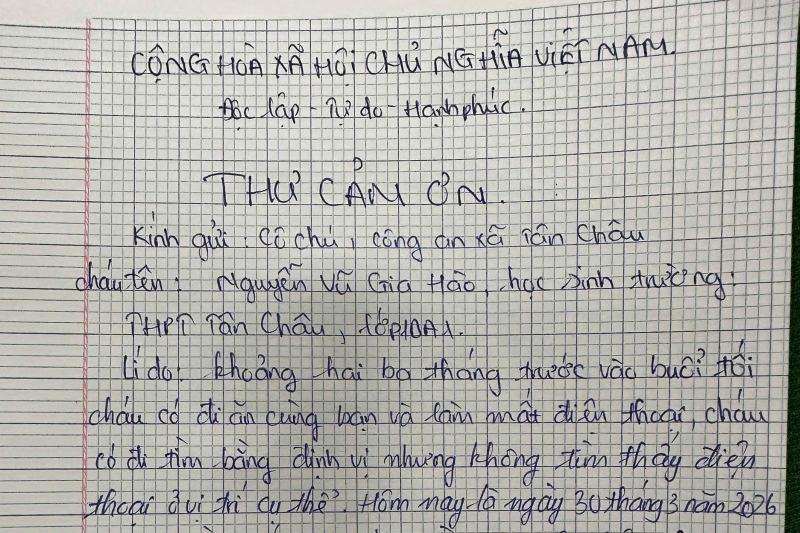 CỘNG HOÀ XÃ HỘI CHỦ NGHĨA VIỆT NAM.
Độc lập - Tự do - Hạnh phúc.
THƯ CẢM ƠN.
Kính gửi: Cô chú, công an xã Tân Châu
cháu tên: Nguyễn Vũ Gia Hào, học sinh trường:
THPT Tân Châu, lớp 10A1.
Lí do: khoảng hai ba tháng trước vào buổi tối
cháu có đi ăn cùng bạn và làm mất điện thoại, cháu
có đi tìm bằng định vị nhưng không tìm thấy điện
thoại ở vị trí cụ thể. Hôm nay là ngày 30 tháng 3 năm 2026